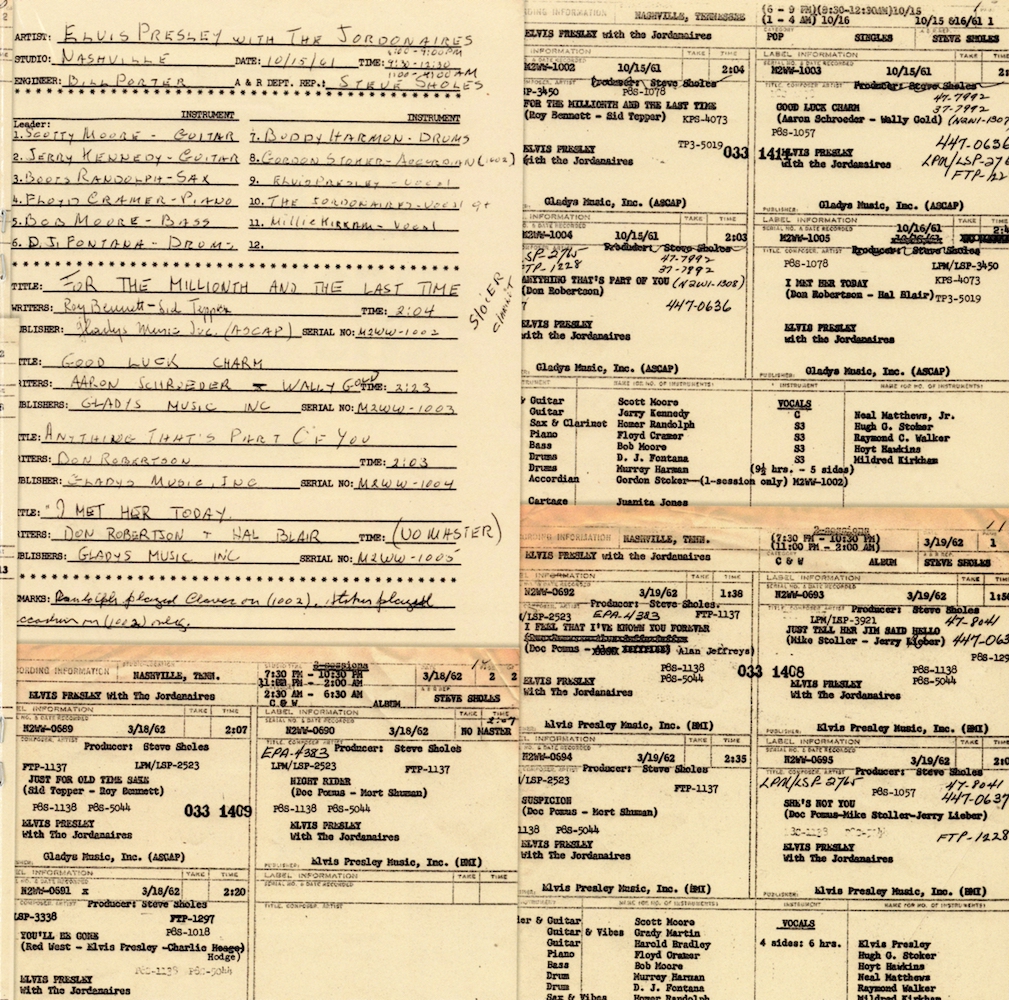 ARTIST: ELVIS PRESLEY WITH THE JORDONAIRES
STUDIO: NASHVILLE DATE: 10/15/61 TIME: 6:00-9:00PM
9:30-12:30
1:00-4:00 AM
ENGINEER: BILL PORTER A & R DEPT. REP.: STEVE SHOLES
INSTRUMENT INSTRUMENT
Leader:
1. SCOTTY MOORE - GUITAR 7. BUDDY HARMON - DRUMS
2. JERRY KENNEDY - GUITAR 8. GORDON STOKER - ACCORDIAN (1002)
3. BOOTS RANDOLPH - SAX 9. ELVIS PRESLEY - VOCAL
4. FLOYD CRAMER - PIANO 10. THE JORDONAIRES - VOCAL 9+
5. BOB MOORE - BASS 11. Millie KIRKHAM - VOCAL
6. D.J. FONTANA - DRUMS 12.
TITLE: FOR THE MILLIONTH AND THE LAST TIME
WRITERS: Roy Bennett - Sid Tepper TIME: 2:04
BLISHER: Gladys Music Inc. (ASCAP) SERIAL NO: M2WW-1002
TLE: GOOD LUCK CHARM
ITERS: AARON SCHROEDER WALLY GOLD TIME: 2:23
BLISHERS: GLADYS MUSIC INC SERIAL NO: M2WW-1003
TLE: ANYTHING THAT'S PART OF YOU
ITERS: DON ROBERTSON TIME: 2:03
BLISHER: GLADYS MUSIC, INC SERIAL NO: M2WW-1004
TLE: "I MET HER TODAY.
ITERS: DON ROBERTSON + HAL BLAIR TIME: (NO MASTER)
BLISHERS: GLADYS MUSIC INC SERIAL NO: M2WW-1005
MARKS: Randolph played Claves on (1002). Stoker played
accordian on (1002) only.
RDING INFORMATION NASHVILLE, TENNESSEE (6 - 9 PM)(9:30-12:30AM)10/15
(1 - 4 AM) 10/16 10/15 &16/61 1
ELVIS PRESLEY with the Jordanaires POP SINGLES STEVE SHOLES
INFORMATION TAKE TIME
M2WW-1002 10/15/61 2:04
Producer: Steve Sholes
SP-3450 P8S-1078
FOR THE MILLIONTH AND THE LAST TIME
(Roy Bennett - Sid Tepper) KPS-4073
TP3-5019
ELVIS PRESLEY
with the Jordanaires
033 1411
Gladys Music, Inc. (ASCAP)
LABEL INFORMATION TAKE TIME
M2WW-1003 10/15/61
Producer: Steve Sholes
47-7992
37-7992
GOOD LUCK CHARM
(Aaron Schroeder - Wally Gold) (N2W1-1307
P8S-1057
447-0636
ELVIS PRESLEY
with the Jordanaires
Gladys Music, Inc. (ASCAP)
INFORMATION TAKE TIME
M2WW-1004 10/15/61 2:03
Producer: Steve Sholes
SP-2765 47-7992
TP-1228 37-7992
ANYTHING THAT'S PART OF YOU (N2W1-1308)
(Don Robertson)
447-0636
ELVIS PRESLEY
with the Jordanaires
Gladys Music, Inc. (ASCAP)
LABEL INFORMATION TAKE TIME
M2WW-1005 10/16/61
Producer: Steve Sholes
P8S-1078 LPM/LSP-3450
I MET HER TODAY KPS-4073
(Don Robertson - Hal Blair) TP3-5019
ELVIS PRESLEY
with the Jordanaires
Gladys Music, Inc. (ASCAP)
Guitar Scott Moore VOCALS
Guitar Jerry Kennedy C Neal Matthews, Jr.
Sax & Clarinet Homer Randolph S3 Hugh G. Stoker
Piano Floyd Cramer S3 Raymond C. Walker
Bass Bob Moore S3 Hoyt Hawkins
Drums D. J. Fontana S3 Mildred Kirkham
Drums Murrey Harman (9½ hrs. - 5 sides)
Accordian Gordon Stoker--(1-session only) M2WW-1002)
Cartage Juanita Jones
ORDING INFORMATION NASHVILLE, TENN. 2-sessions
7:30 PM - 10:30 PM
11:00 PM - 2:00 AM
2:30 AM - 6:30 AM
3/18/62 2 2
ELVIS PRESLEY With The Jordanaires C & W ALBUM STEVE SHOLES
EL INFORMATION TAKE TIME
N2WW-0689 3/18/62 2:07
Producer: Steve Sholes
FTP-1137 LPM/LSP-2523
JUST FOR OLD TIME SAKE
(Sid Tepper - Roy Bennett)
P8S-1138 P8S-5044
033 1409
ELVIS PRESLEY
With The Jordanaires
Gladys Music, Inc. (ASCAP)
LABEL INFORMATION TAKE TIME
N2WW-0690 3/18/62 NO MASTER
EPA-4383 Producer: Steve Sholes
LPM/LSP-2523 FTP-1137
NIGHT RIDER
(Doc Pomus - Mort Shuman)
P8S-1138 P8S-5044
ELVIS PRESLEY
With The Jordanaires
Elvis Presley Music, Inc. (BMI)
EL INFORMATION TAKE TIME
N2WW-0691 x 3/18/62 2:20
Producer: Steve Sholes
LSP-3338 FTP-1297
P8S-1018
YOU'LL BE GONE
(Red West - Elvis Presley -Charlie Hodge)
P8S-1138 P8S-5044
ELVIS PRESLEY
With The Jordanaires
LABEL INFORMATION TAKE TIME
RDING INFORMATION NASHVILLE, TENN. 2-sessions
(7:30 PM - 10:30 PM)
(11:00 PM - 2:00 AM)
3/19/62 1
ELVIS PRESLEY with the Jordanaires C & W ALBUM STEVE SHOLES
INFORMATION TAKE TIME
N2WW-0692 3/19/62 1:38
Producer: Steve Sholes.
LSP-2523 EPA-4383 FTP-1137
I FEEL THAT I'VE KNOWN YOU FOREVER
(Doc Pomus - Alan Jeffreys)
P8S-1138
P8S-5044
033 1408
ELVIS PRESLEY
With The Jordanaires
Elvis Presley Music, Inc. (BMI)
LABEL INFORMATION TAKE TIME
N2WW-0693 3/19/62
Producer: Steve Sholes
LPM/LSP-3921 47-8041
JUST TELL HER JIM SAID HELLO
(Mike Stoller - Jerry Lieber)
P8S-1138
P8S-5044
ELVIS PRESLEY
With The Jordanaires
Elvis Presley Music, Inc. (BMI)
INFORMATION TAKE TIME
N2WW-0694 3/19/62 2:35
Producer: Steve Sholes
/LSP-2523 FTP-1137
SUSPICION
(Doc Pomus - Mort Shuman)
1138 P8S-5044
ELVIS PRESLEY
With The Jordanaires
Elvis Presley Music, Inc. (BMI)
LABEL INFORMATION TAKE TIME
N2WW-0695 3/19/62
Producer: Steve Sholes
LPM/LSP-2765 P8S-1057 47-8041
447-0637
SHE'S NOT YOU
(Doc Pomus-Mike Stoller-Jerry Lieber)
FTP-1228
ELVIS PRESLEY
With The Jordanaires
Elvis Presley Music, Inc. (BMI)
INSTRUMENT NAME (OR NO. OF INSTRUMENTS)
der & Guitar Scott Moore VOCALS
Guitar & Vibes Grady Martin 4 sides: 6 hrs. Elvis Presley
Guitar Harold Bradley Hugh G. Stoker
Piano Floyd Cramer Hoyt Hawkins
Bass Bob Moore Neal Matthews
Drum D. J. Fontana Raymond Walker
Drum Murrey Harman Mildred Kirkham
Sax & Vibes Homer Randolph